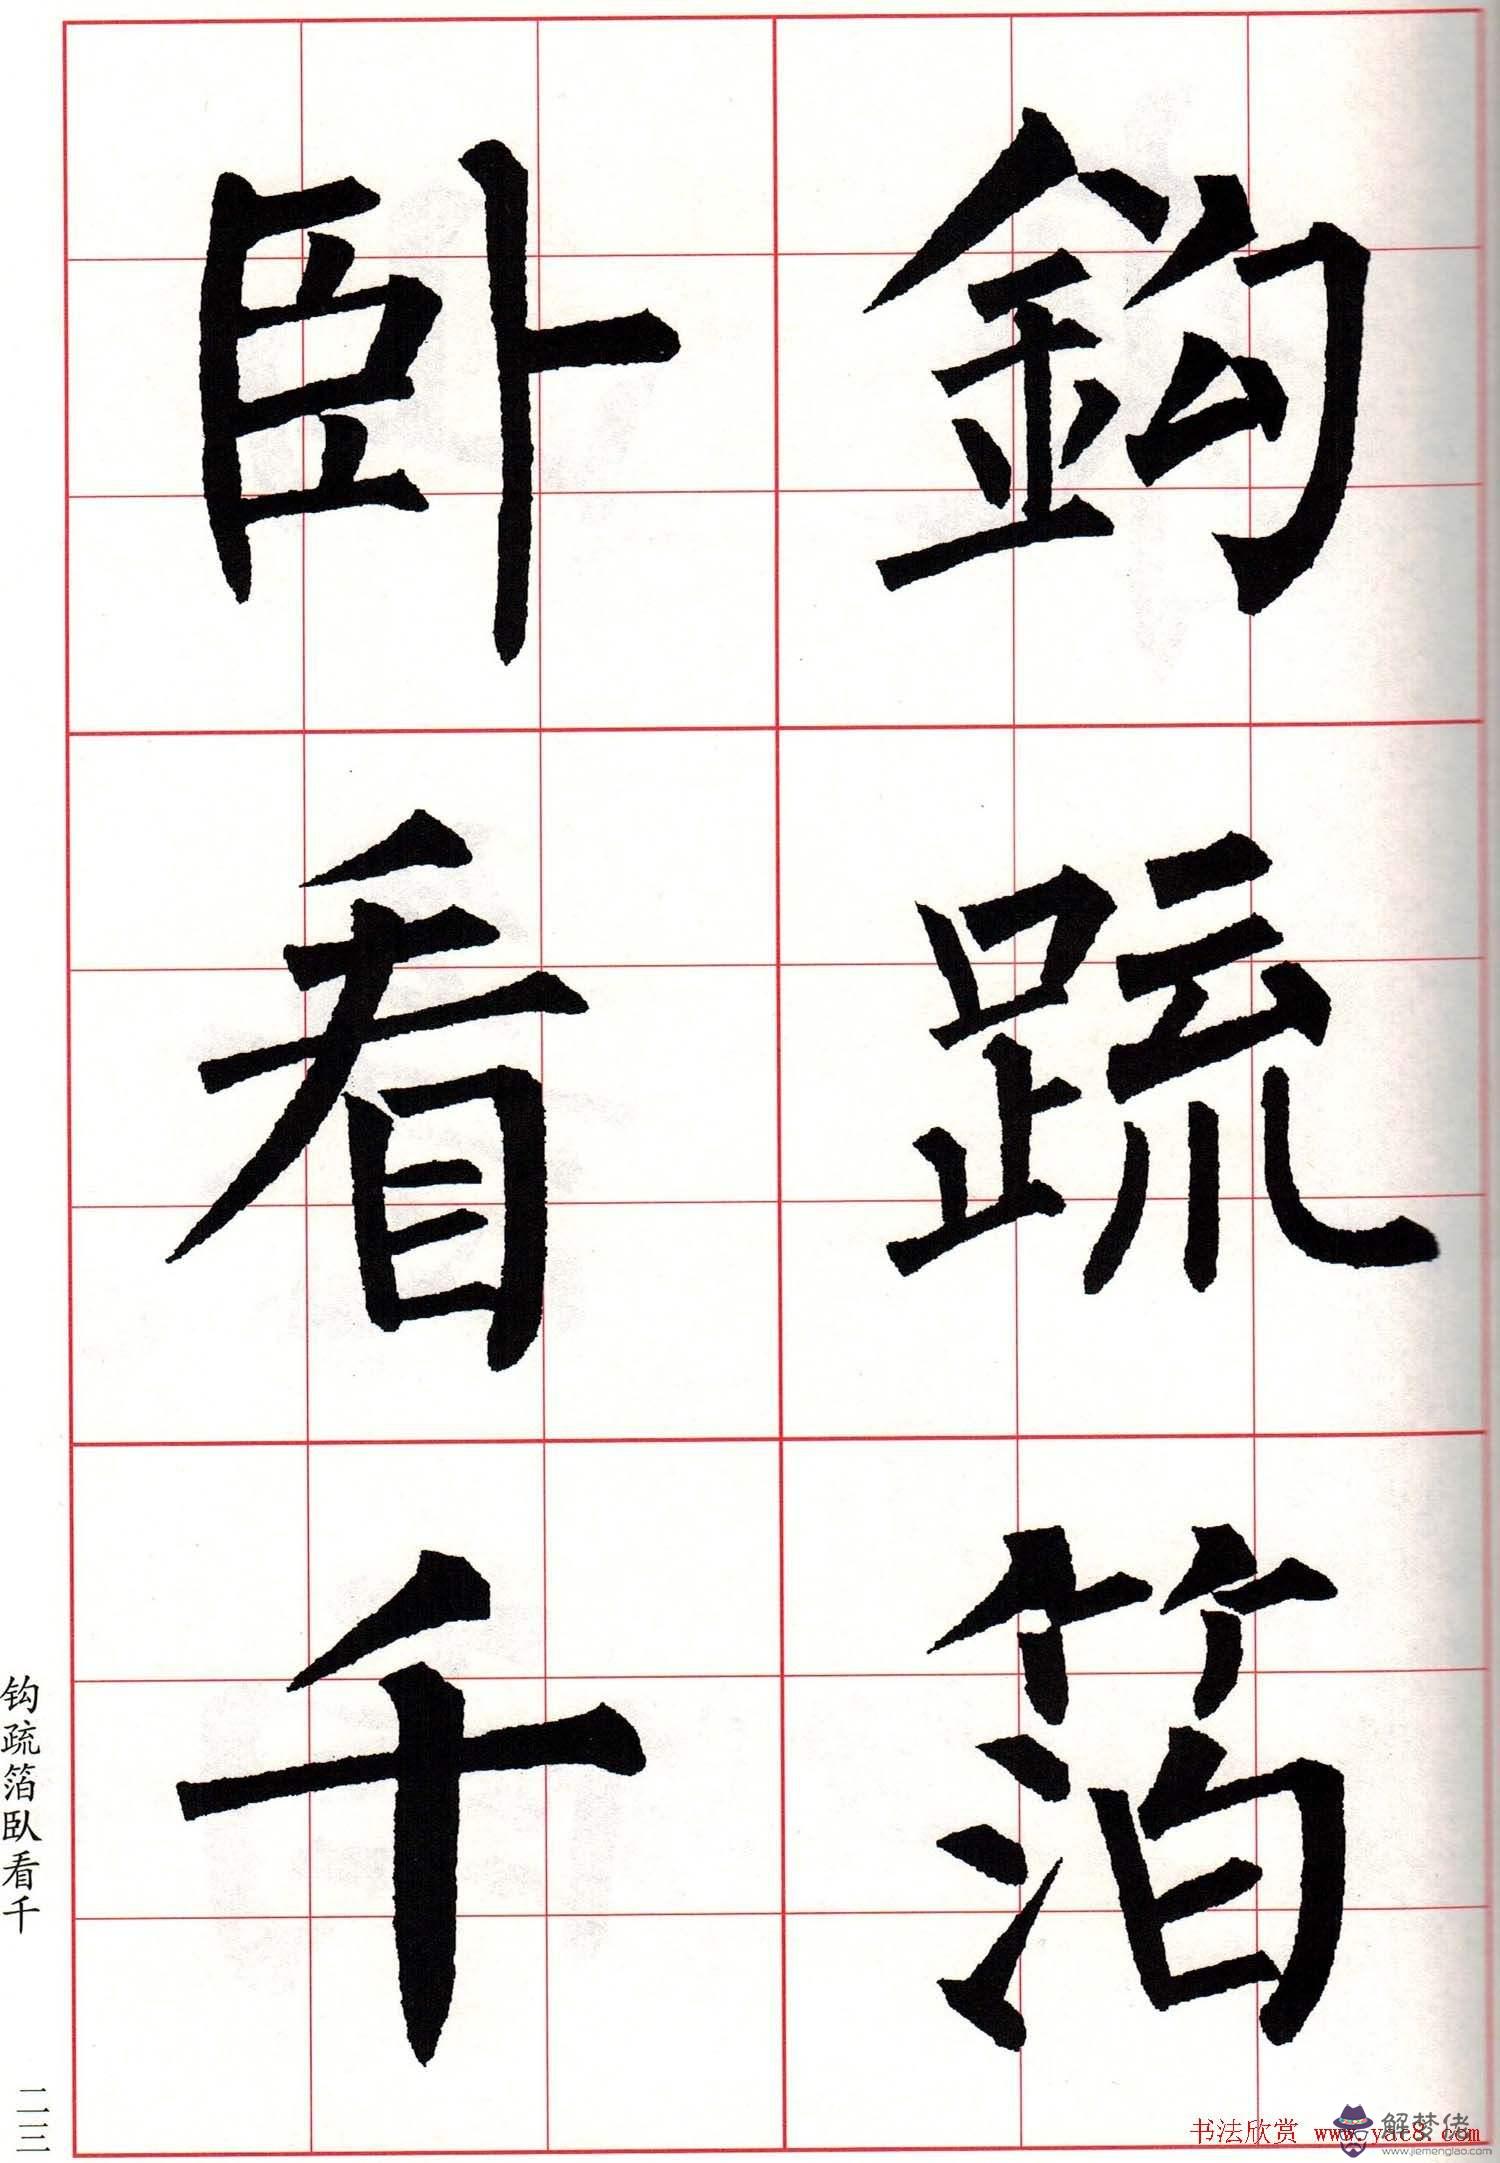 鈎疏箔
卧看千
钩疏箔卧看千
二三
书法欣赏 www.yac8.com
解梦佬
www.jiemenglao.com